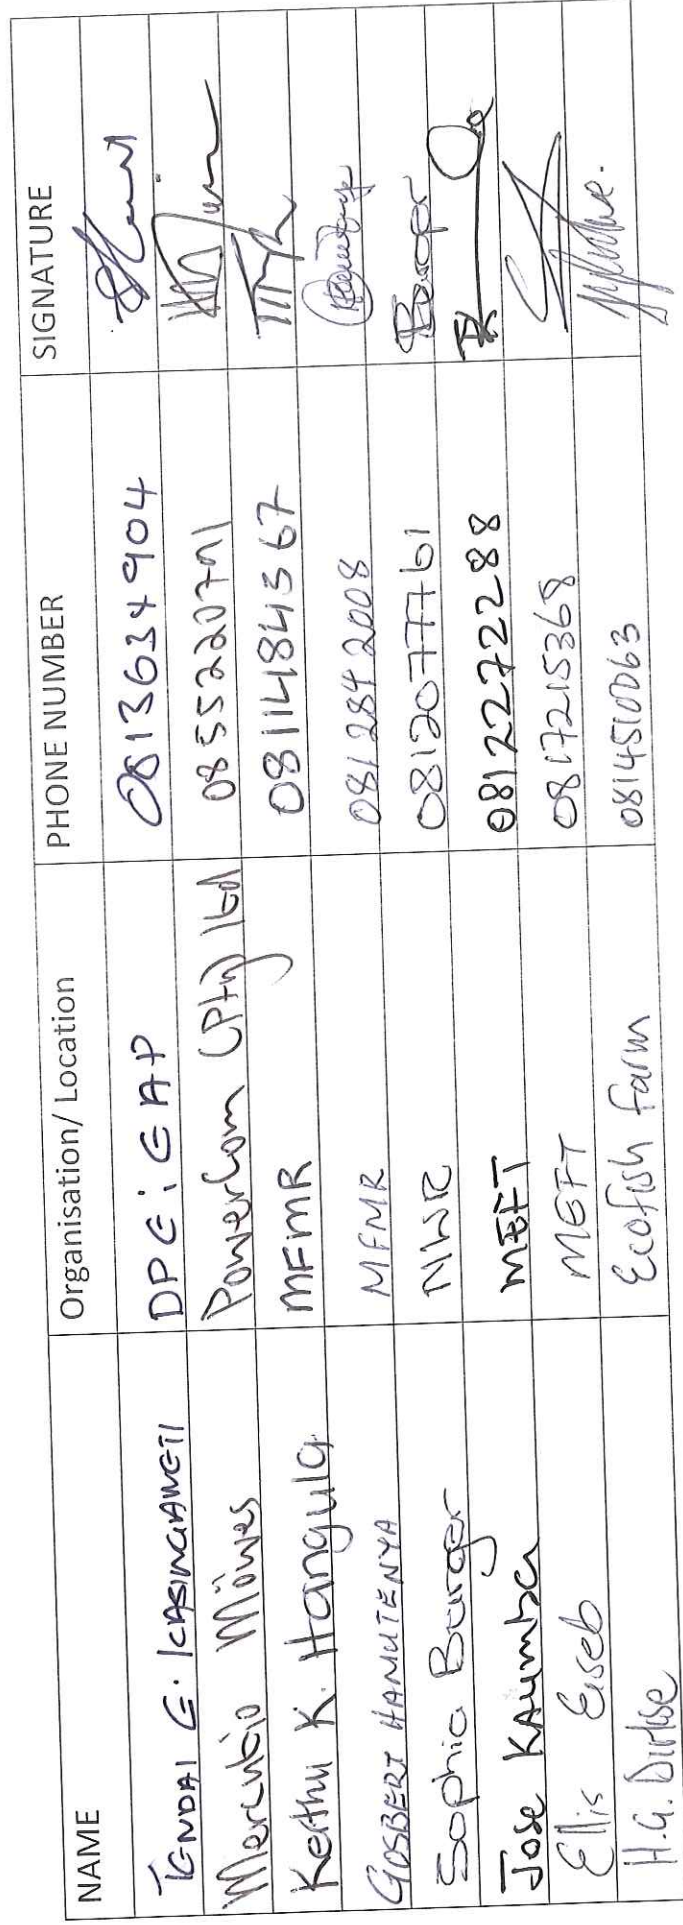 NAME Organisation/ Location PHONE NUMBER SIGNATURE
TENDAI E. KASINGANETI DPE: EAP 0813634904
Mercutio Möwes PowerCom (Pty) Ltd 0855220791
Kerthu K. Hangula MFMR 0811484567
GOSBERT HAMUTENYA MFMR 0812842008
Sophia Burger NWR 0812077761 Burger
Jose KAUMBA MEFT 0812272288
Ellis Eiseb MEFT 0817215368
H.G. Ecofish farm 0814510063